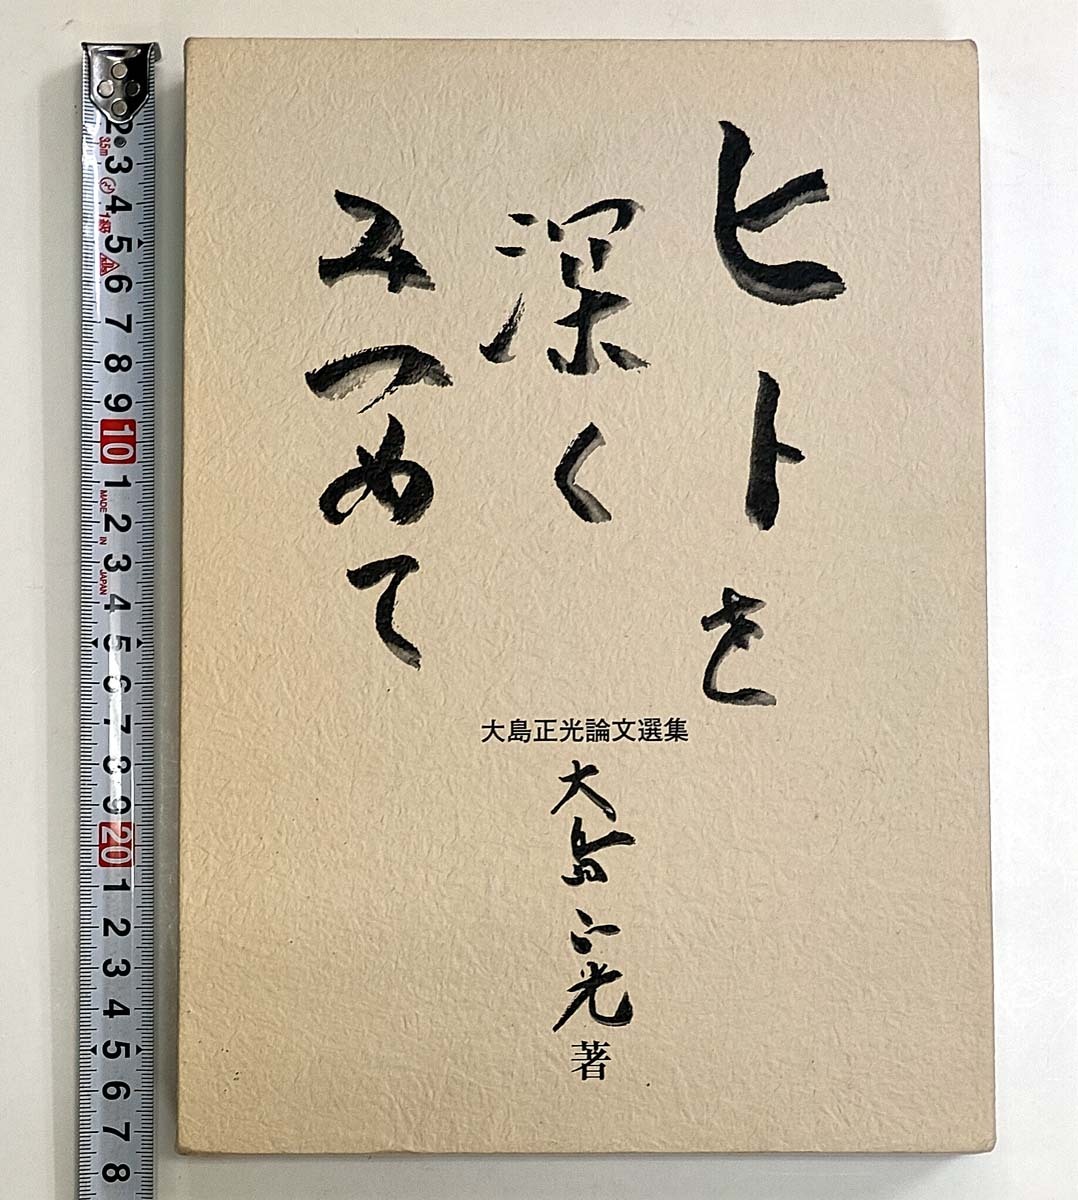 ヒトを
深く
みつめて
大島正光論文選集
大島正光
著
2
3
3.5m
4
1級
5
6
7
8
9
10
1
MADE
2
IN
3
JAPAN
4
5
6
7
8
9
20
1
2
3
4
5
6
7
8